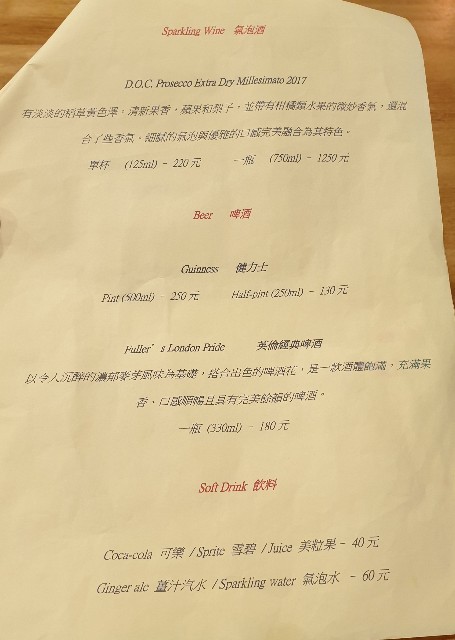 Sparkling Wine 氣泡酒
D.O.C. Prosecco Extra Dry Millesimato 2017
有淡淡的稻草黃色澤，清新果香，蘋果和梨子，並帶有柑橘類水果的微妙香氣，還混
合了些香氣。細膩的氣泡與優雅的口感完美融合為其特色。
單杯 (125ml) - 220 元 一瓶 (750ml) - 1250 元
Beer 啤酒
Guinness 健力士
Pint (500ml) - 250 元 Half-pint (250ml) - 130 元
Fuller's London Pride 英倫經典啤酒
以令人沉醉的濃郁麥芽風味為基礎，搭合出色的啤酒花，是一款酒體飽滿，充滿果
香、口感順暢且具有完美餘韻的啤酒。
一瓶 (330ml) - 180 元
Soft Drink 飲料
Coca-cola 可樂 / Sprite 雪碧 / Juice 美粒果 - 40 元
Ginger ale 薑汁汽水 / Sparkling water 氣泡水 - 60 元